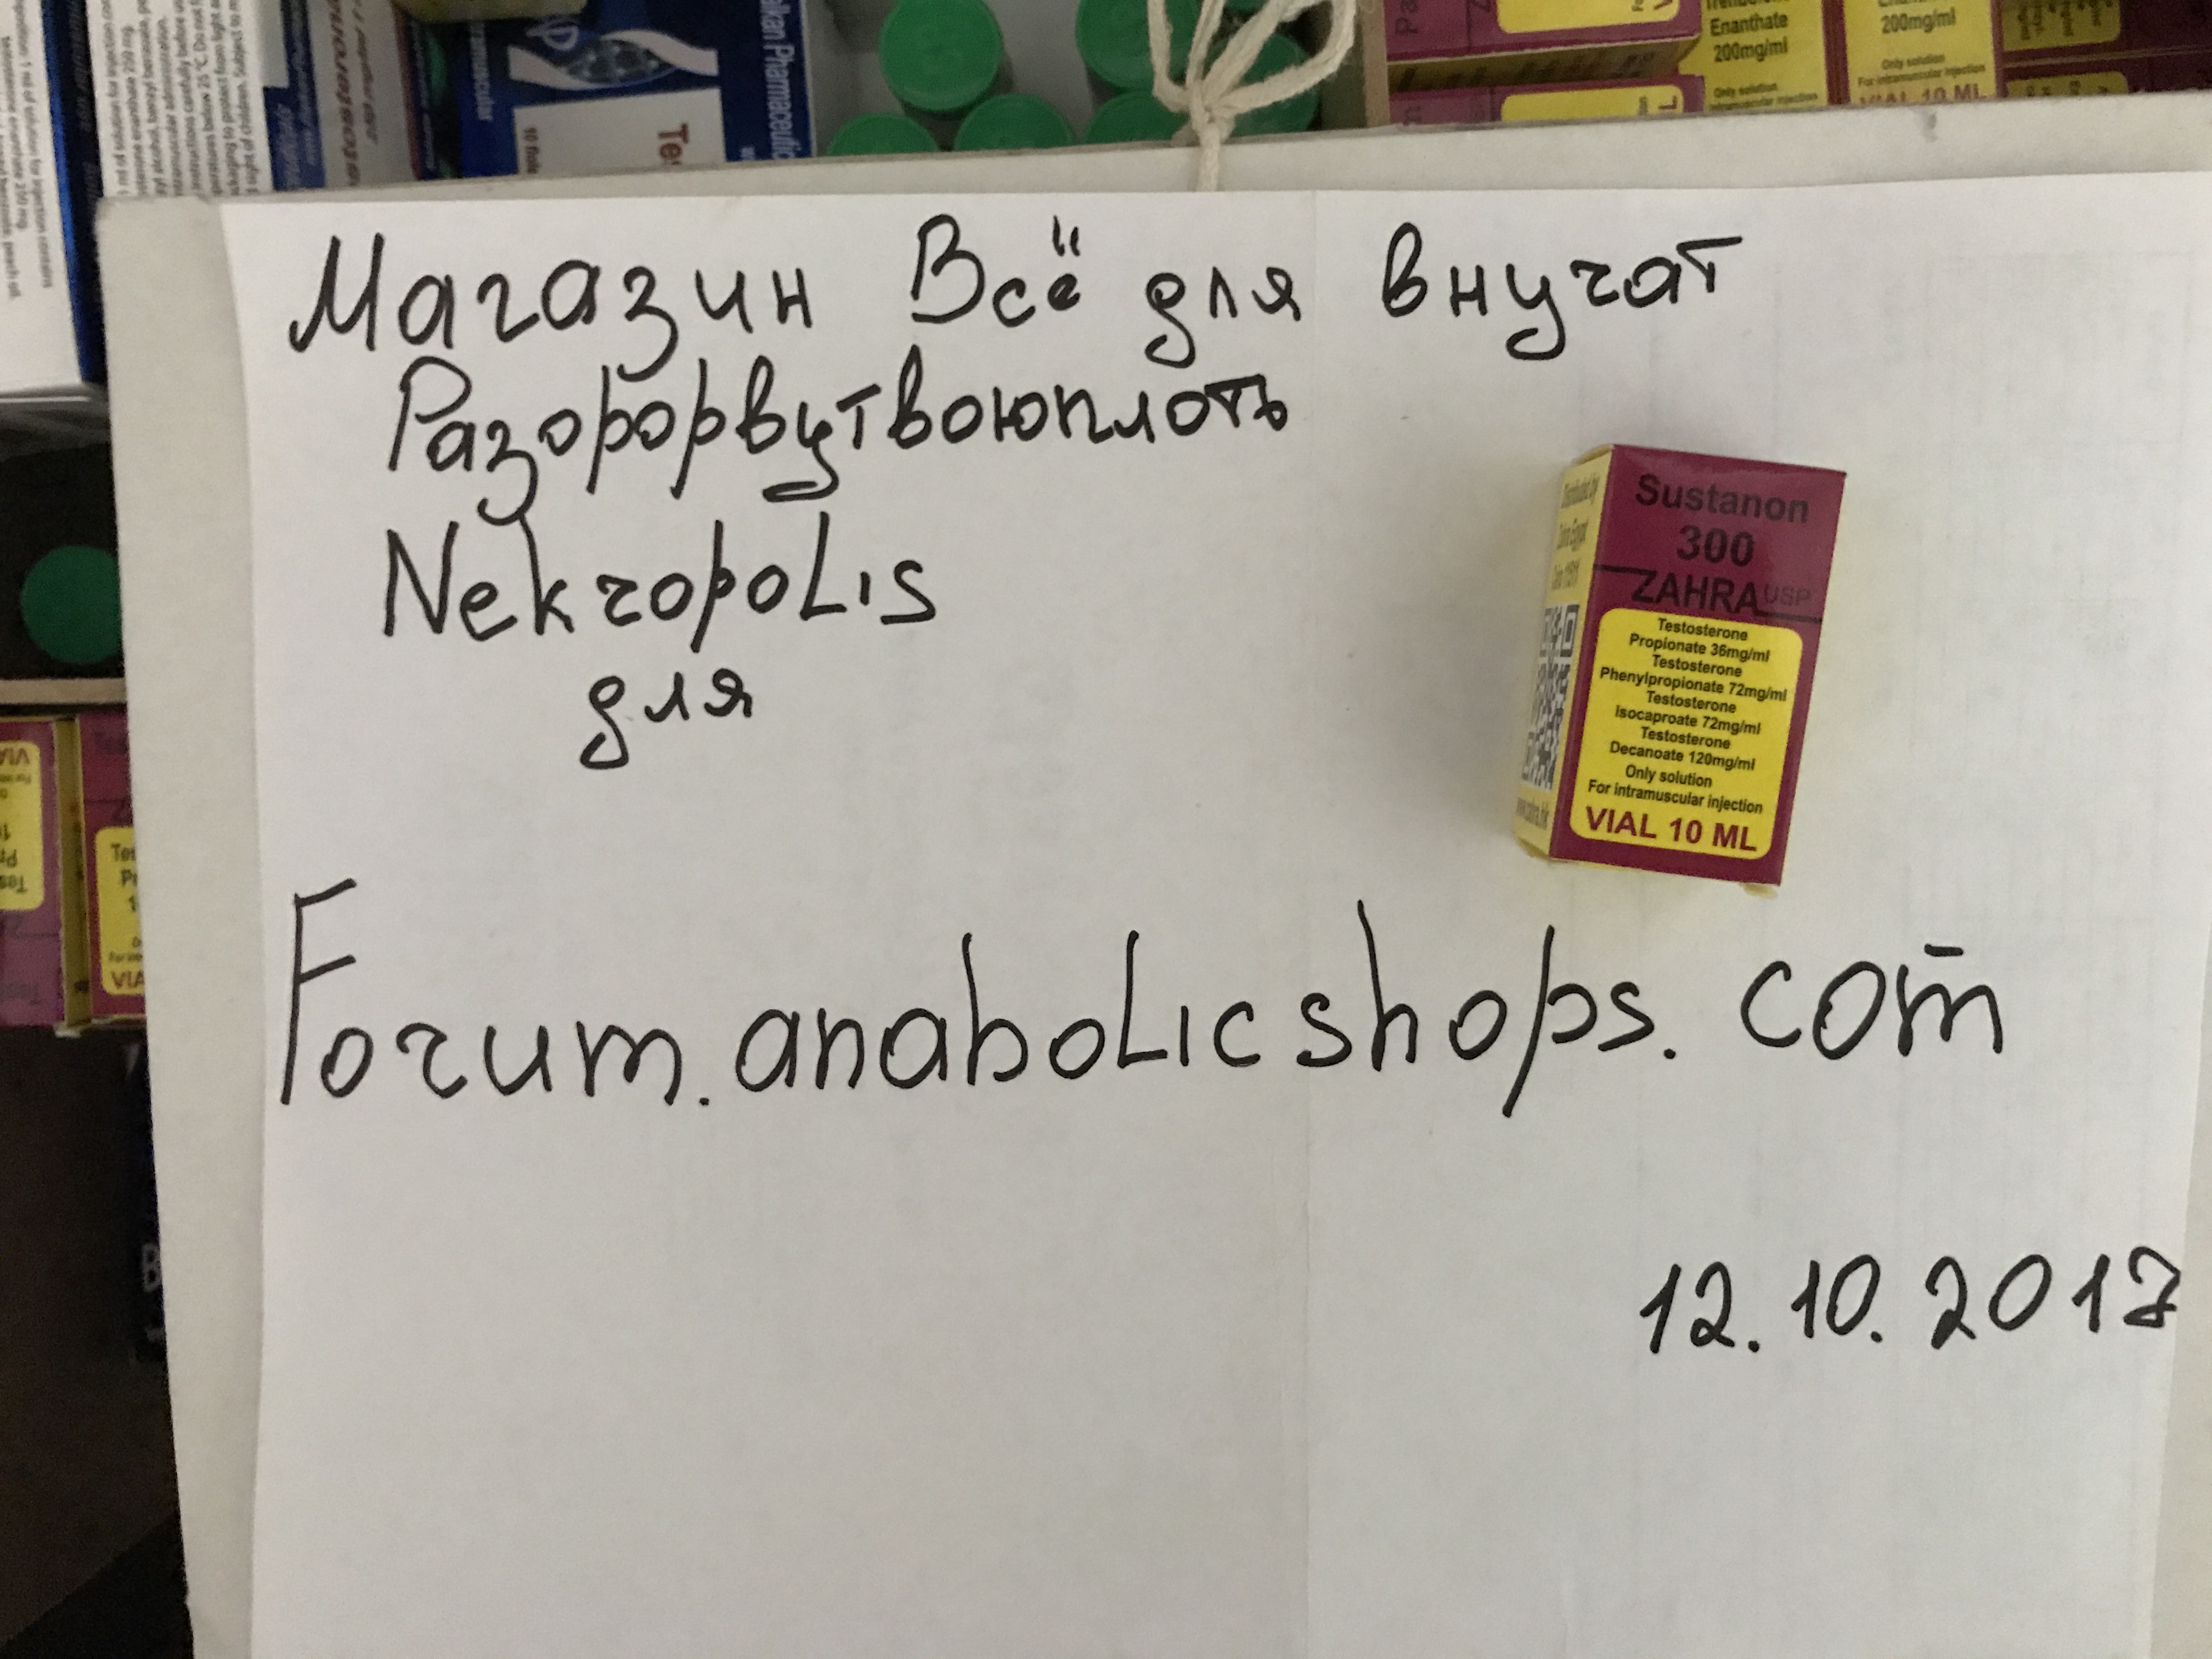 Enanthate
200mg/ml
Only solution
200mg/ml
Only solution
For intramuscular injection
VIAL 10 ML
Магазин Всё для внучат
Разорорвутвоюплоть
NekropoLis
для
Sustanon
300
ZAHRA USP
Testosterone
Propionate 36mg/ml
Testosterone
Phenylpropionate 72mg/ml
Testosterone
Isocaproate 72mg/ml
Testosterone
Decanoate 120mg/ml
Only solution
For intramuscular injection
VIAL 10 ML
Forum.anaboLicshops.com
12.10.2017